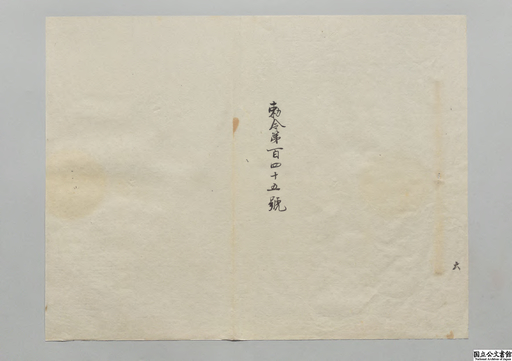 勅令第一百四十五號
六
国立公文書館
National Archives of Japan